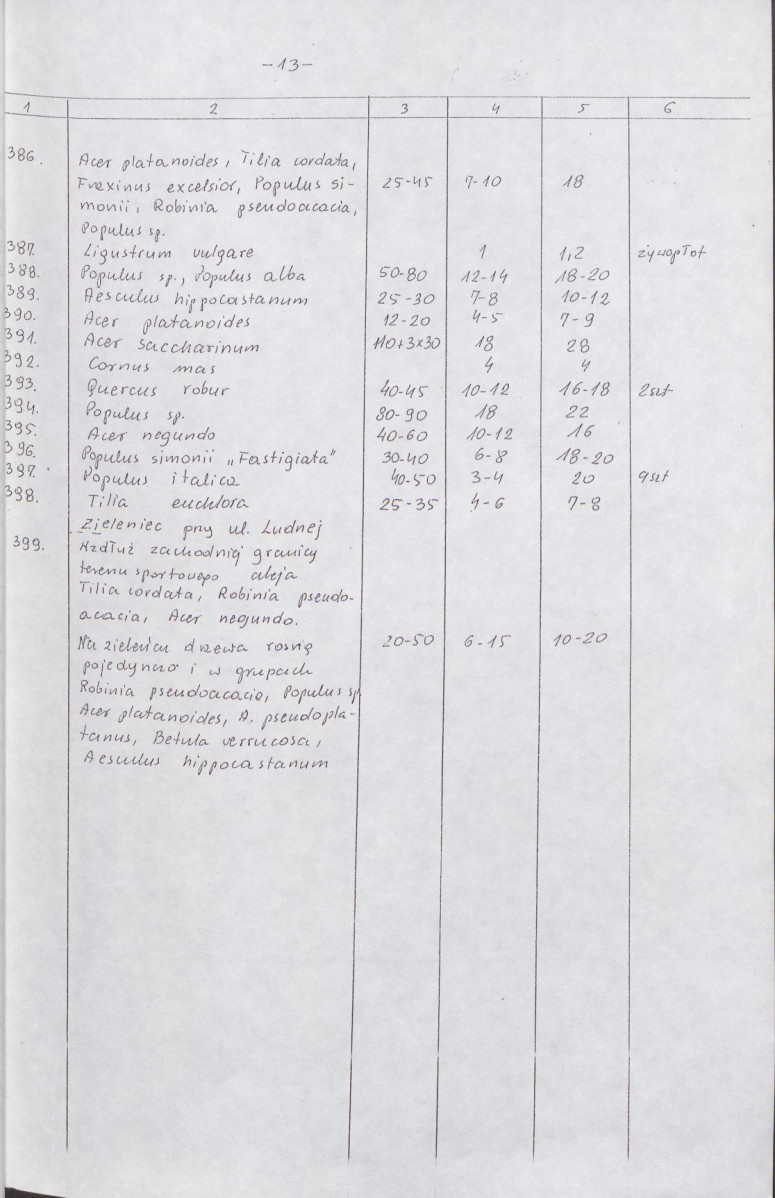 -13-
1 2 3 4 5 6
386. Acer platanoides, Tilia cordata,
Fraxinus excelsior, Populus si- 25-45 7-10 18
monii, Robinia pseudoacacia,
Populus sp.
387. Ligustrum vulgare 1 1,2 żywopłot
388. Populus sp., Populus alba 50-80 12-14 18-20
389. Aesculus hippocastanum 25-30 7-8 10-12
390. Acer platanoides 12-20 4-5 7-9
391. Acer saccharinum 110+3x30 18 28
392. Cornus mas 4 4
393. Quercus robur 40-45 10-12 16-18 2szt
394. Populus sp. 80-90 18 22
395. Acer negundo 40-60 10-12 16
396. Populus simonii „Fastigiata" 30-40 6-8 18-20
397. Populus italica 40-50 3-4 20 9szt
398. Tilia euchlora 25-35 4-6 7-8
Zieleniec przy ul. Ludnej
399. Wzdłuż zachodniej granicy
terenu sportowego aleja
Tilia cordata, Robinia pseudo-
acacia, Acer negundo.
Na zieleńcu drzewa rosną 20-50 6-15 10-20
pojedynczo i w grupach
Robinia pseudoacacia, Populus sp
Acer platanoides, A. pseudopla-
tanus, Betula verrucosa,
Aesculus hippocastanum